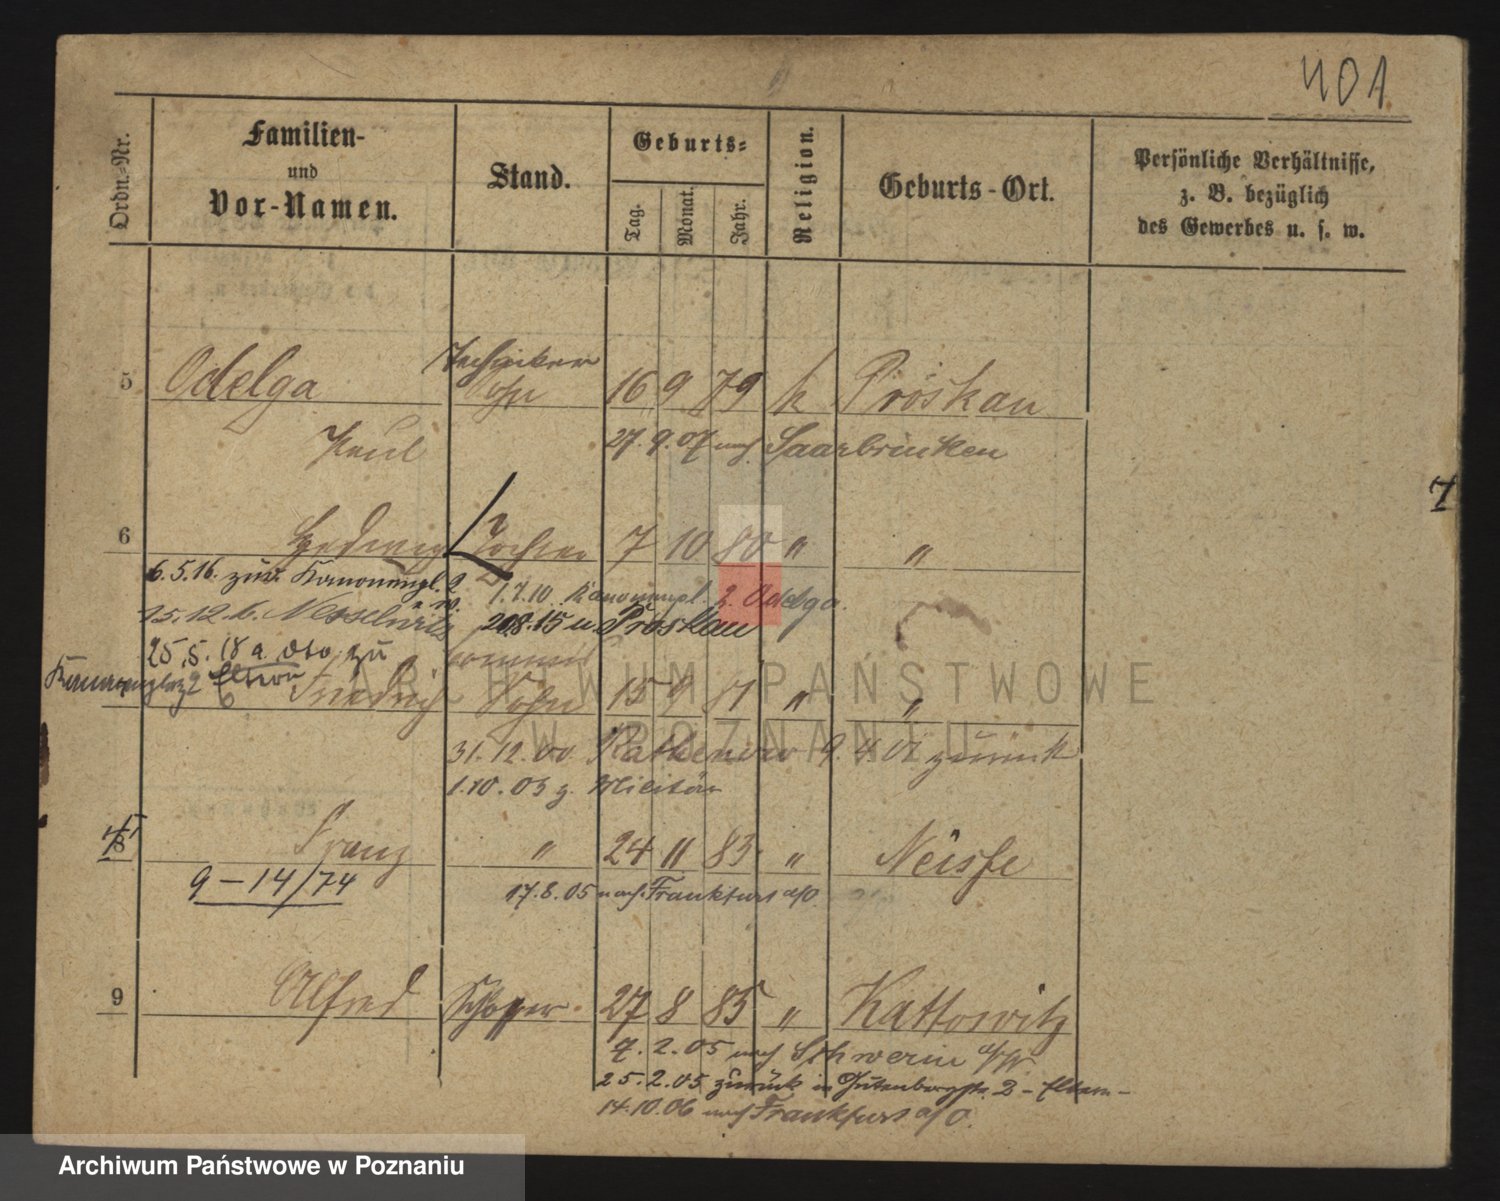 401
Ordn.-Nr.
Familien-
und
Vor-Namen.
Stand.
Geburts-
Tag.
Monat.
Jahr.
Religion.
Geburts-Ort.
Persönliche Verhältnisse,
z. B. bezüglich
des Gewerbes u. s. w.
Techniker
5 Odelga Sohn 16 9 79 k Proskau
Paul 27. 9. 07 nach Saarbrücken
7
6 Hedwig Tochter 7 10 80 " "
6.5.16. zur Kanonenpl. 2
1.7.10 Kanonenpl. 2. Odelga.
15.12.6.
20.8.15 u. Proskau
25.5.18 a. dto zu
Kanonenplatz 2 Eltern
Friedrich Sohn 15 9 81 " "
31.12.00 Rathenow 9.4.01 zurück
1.10.03 z. Militär
Franz " 24 11 83 " Neisse
9-14/74
17.8.05 nach Frankfurt a/O.
9 Alfred 27 8 85 " Kattowitz
7.2.05 nach Schwerin a/W
25.2.05 zurück in Gutenbergstr. 2 - Eltern -
14.10.06 nach Frankfurt a/O.
ARCHIWUM PAŃSTWOWE
W POZNANIU
Archiwum Państwowe w Poznaniu